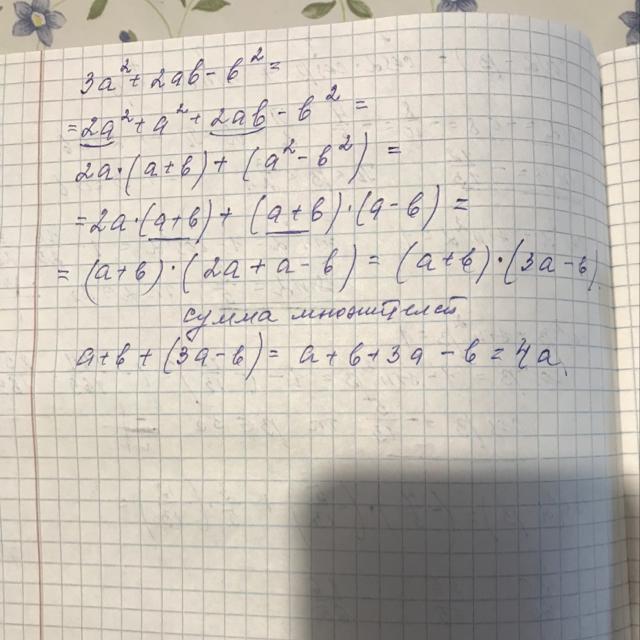 3a² + 2ab - b² =
= 2a² + a² + 2ab - b² =
2a·(a+b) + (a² - b²) =
= 2a·(a+b) + (a+b)·(a-b) =
= (a+b)·(2a+a-b) = (a+b)·(3a-b)
сумма множителей
a+b+(3a-b) = a+b+3a-b = 4a.